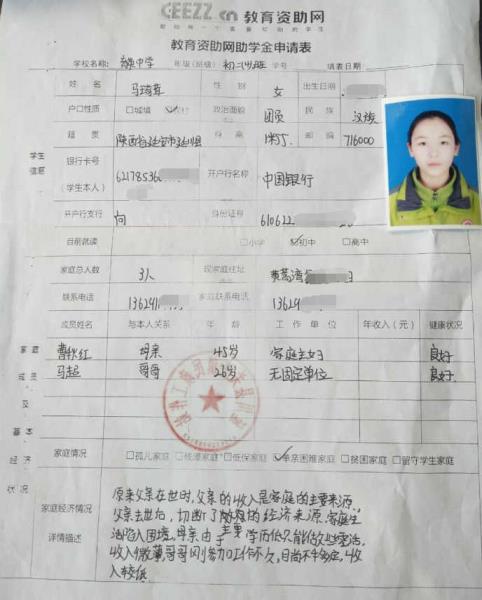 CEEZZ.cn 教育资助网
教育资助网助学金申请表
学校名称: 中学 年级(班级) 初二 班 学号 填表日期:
姓 名 马 性 别 女 出生日期
户口性质 □城镇 农村 政治面貌 团员 民 族 汉族
籍 贯 陕西省延安市延 县 身 高 1米55. 邮 编 716000
学生
信息
银行卡号
(学生本人)
62178536
开户行名称 中国银行
开户行支行 身份证号 610622
目前就读 □小学 ☑初中 □高中
家庭总人数 3人 现家庭住址
联系电话 13629 家庭联系电话 13629
成员姓名 与本人关系 年 龄 工 作 单 位 年收入(元) 健康状况
曹秋红 母亲 45岁 家庭主妇 良好
马超 哥哥 26岁 无固定单位 良好
家庭
成员
及
基本
经济
状况
家庭情况 □孤儿家庭 □残港家庭 □低保家庭 ☑单亲困难家庭 □贫困家庭 □留守学生家庭
家庭经济情况
详情描述
原来父亲在世时,父亲的收入是家庭的主要来源.
父亲去世后,切断了 的经济来源.家庭生
活陷入困境.母亲由于 学历低只能做些零活.
收入微薄,哥哥刚参加工作不久,目尚不稳定,收
入较低